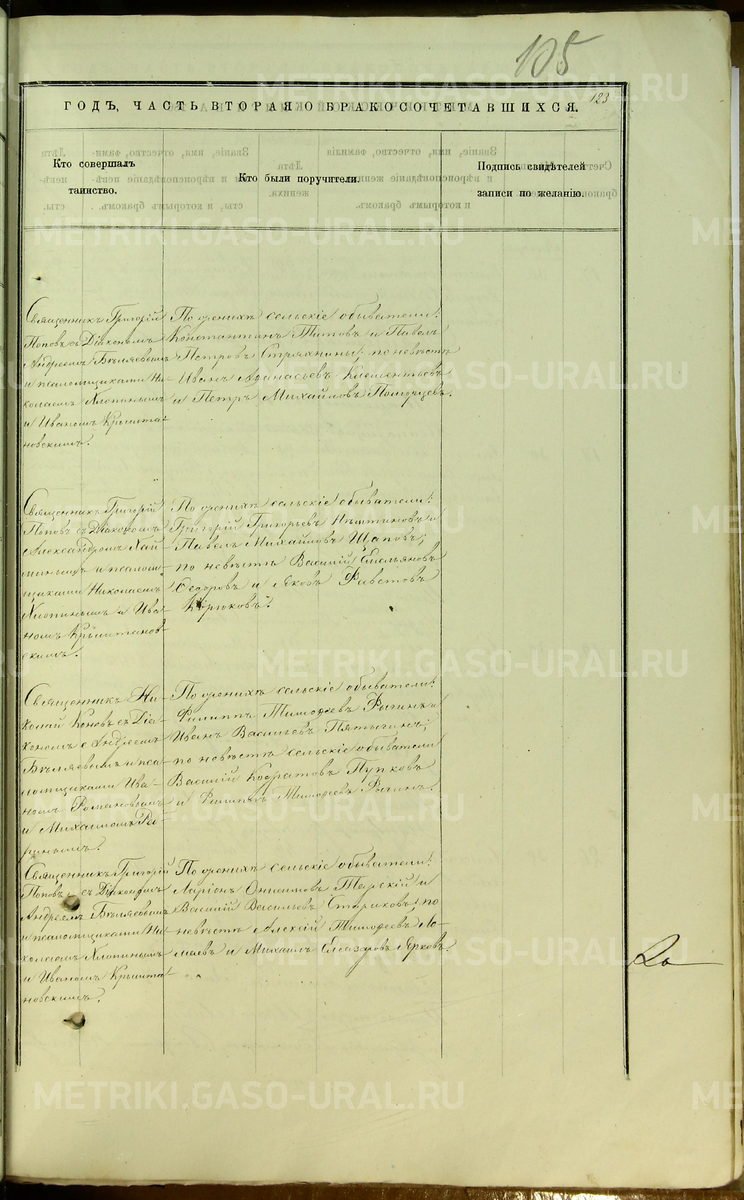 105
123
ГОДЪ, ЧАСТЬ ВТОРАЯ О БРАКОСОЧЕТАВШИХСЯ.
Кто совершалъ
таинство.
Кто были поручители.
Подпись свидѣтелей
записи по желанію.
Священникъ Григорій
Поповъ съ Діакономъ
Андреемъ Бѣляевымъ
и псаломщиками Ни-
колаемъ Хлопинымъ
и Иваномъ Крышта-
новскимъ.
По женихѣ сельскіе обыватели:
Константинъ Титовъ и Павелъ
Петровъ Стряхнины; по невѣстѣ
Иванъ Афанасьевъ Клементьевъ
и Петръ Михайловъ
Священникъ Григорій
Поповъ съ Діакономъ
Александромъ
и псалом-
щиками Николаемъ
Хлопинымъ и Ива-
номъ Крыштанов-
скимъ.
По женихѣ сельскіе обыватели:
Григорій Григорьевъ и
Павелъ Михайловъ Щаповъ;
по невѣстѣ Василій Емельяновъ
Ѳедоровъ и Яковъ
Крюковъ.
Священникъ Ни-
колай съ Діа-
кономъ Андреемъ
Бѣляевымъ и пса-
ломщиками Ива-
номъ Романовымъ
и Михаиломъ
По женихѣ сельскіе обыватели:
Филиппъ Тимофеевъ и
Иванъ Васильевъ
по невѣстѣ сельскіе обыватели
Василій Пупковъ
и Филиппъ Тимофеевъ
Священникъ Григорій
Поповъ съ Діакономъ
Андреемъ Бѣляевымъ
и псаломщиками Ни-
колаемъ Хлопинымъ
и Иваномъ Крышта-
новскимъ.
По женихѣ сельскіе обыватели:
Ларіонъ Онисимовъ Терскій и
Василій Васильевъ Стариковъ; по
невѣстѣ Алексѣй Тимофеевъ
и Михаилъ Елеазаровъ
METRIKI.GASO-URAL.RU